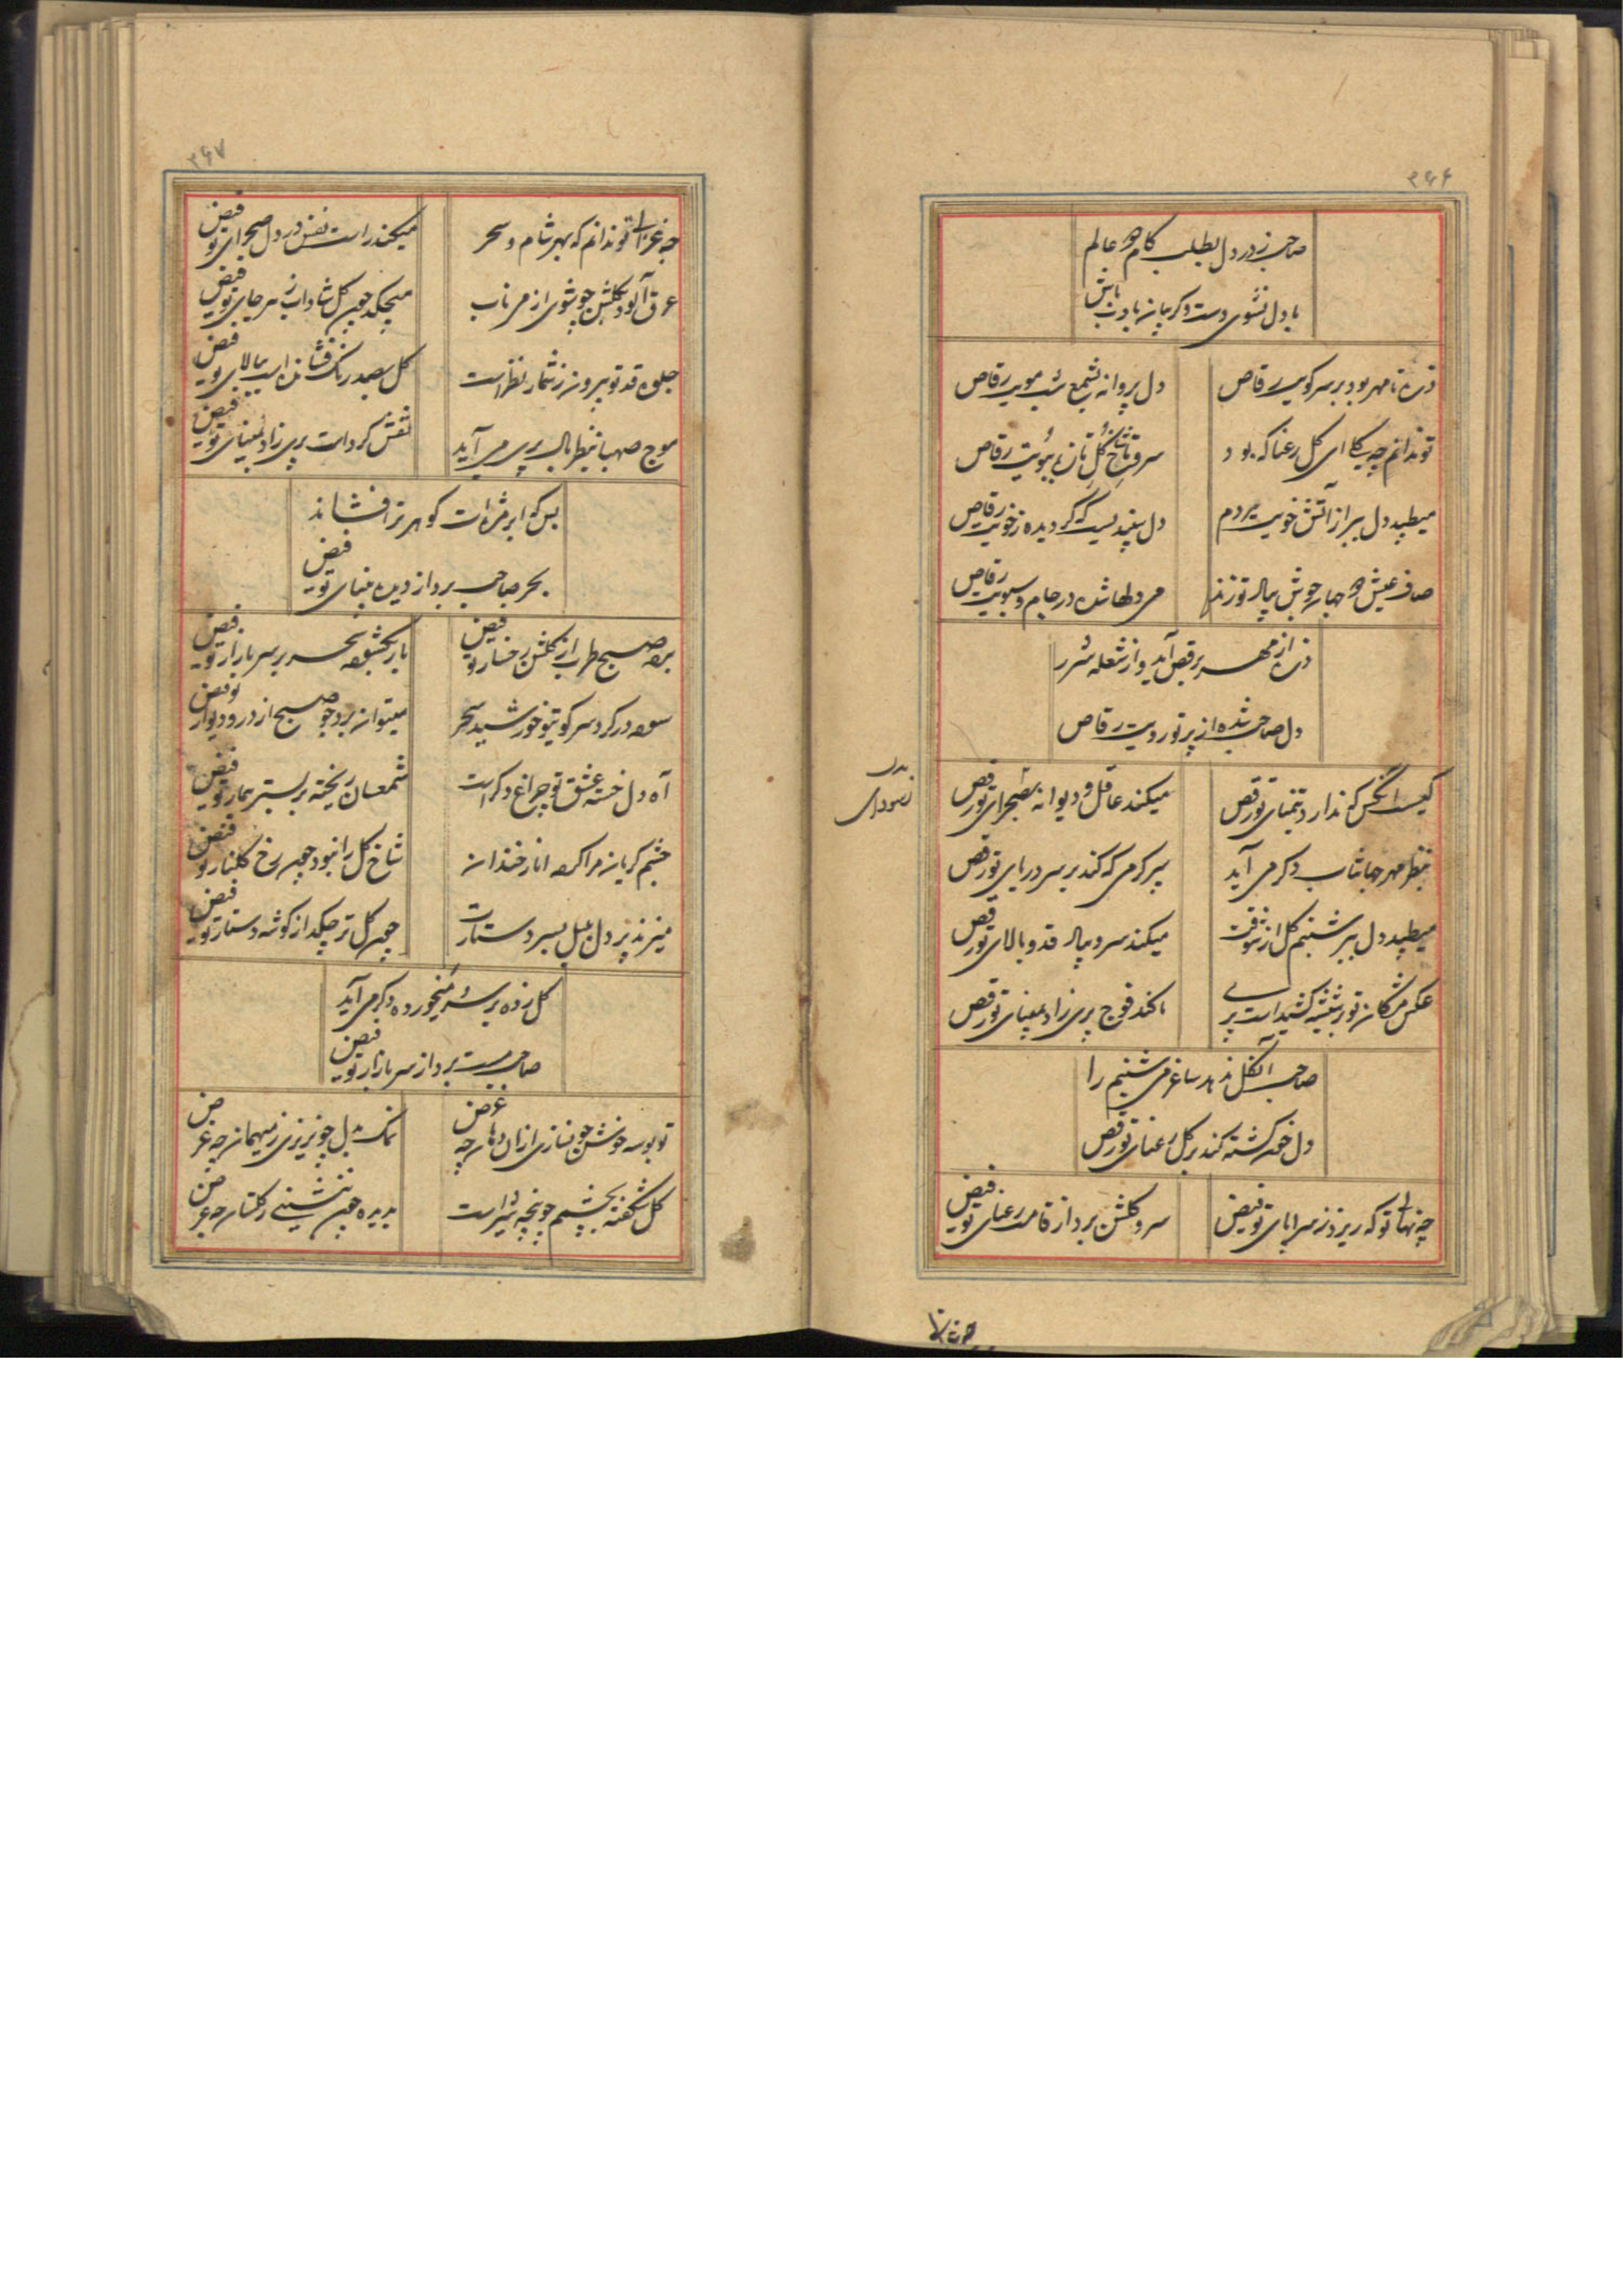 ۳۶۶
صاحب ز در دل بطلب کام دو عالم
با دل نشوی دست و کریبان بادب باش
ذره تا مهر بود بر سر کویت رقاص
دل پروانه بشمع شب مویت رقاص
تو ندانم چه بکا ای کل رعنا که بود
سر و تا شاخ کل تازه ببویت رقاص
میطپد دل ببر از آتش خویت هر دم
دل سپندیست که کردیده ز خویت رقاص
صاف عیش دو جهان جوش بپاله تو زند
می دلها شده در جام و سبویت رقاص
ذره از مهر برقص آید و از شعله شرر
دل صاحب شده از پرتو رویت رقاص
کیست آنکس که ندارد بتمنای تو رقص
میکند عاقل و دیوانه بصحرای تو رقص
بنظر مهر جهانتاب دکر می آید
سر کرمی که کند بر سر دریای تو رقص
میطپد دل ببر شبنم کل از شوقت
میکند سرو بپاله قد و بالای تو رقص
عکس مژکان تو بر شیشه کشیداست پری
نکند فوج پری زاد بمینای تو رقص
صاحب آن کل ندهد ساغر می شبنم را
دل خون کشته کند بر کل رعنای تو رقص
چه نهالی تو که ریزد ز سراپای تو فیض
سرو کلشن برد از قامت رعنای تو فیض
۳۶۷
چه غزالی تو ندانم که بهر شام و سحر
میکند راست نفس در دل صحرای تو فیض
عرق آلود بکلشن چو شوی از می ناب
میچکد چون کل شاداب ز هر جای تو فیض
جلوه قد تو بیرون ز شمار نظر است
کل بصد رنک فشانده است ببالای تو فیض
موج صهبا بنظر بال پری می آید
نقش کرد است پری زاد بمینای تو فیض
بس که ابر مژه ات کوهر تر افشاند
بحر صاحب برد از دیده بینای تو فیض
برد صبح طرب از کلشن رخسار تو فیض
بار بکشود سحر بر سر بازار تو فیض
سوده در کرد سر کوی تو خورشید سحر
میتوان برد چو صبح از در و دیوار تو فیض
آه دل خسته عشق تو چراغ دکر است
شمعسان ریخته بر بستر بیمار تو فیض
چشم کریان مرا کرد انار خندان
شاخ کل را نبود چون رخ کلنار تو فیض
میزند پر دل بلبل بسر دستارت
چون کل تر چکد از کوشه دستار تو فیض
کل زده بر سر و میخورده دکر می آید
صاحب مست برد از سر بازار تو فیض
تو بوسه خوش چو نسازی ازان دهان چه غرض
نمک بدل چو نریزی ز میهمان چه غرض
کل شکفته بچشمم چو غنچه شر است
بدیده چون ننشینی ز کلستان چه غرض